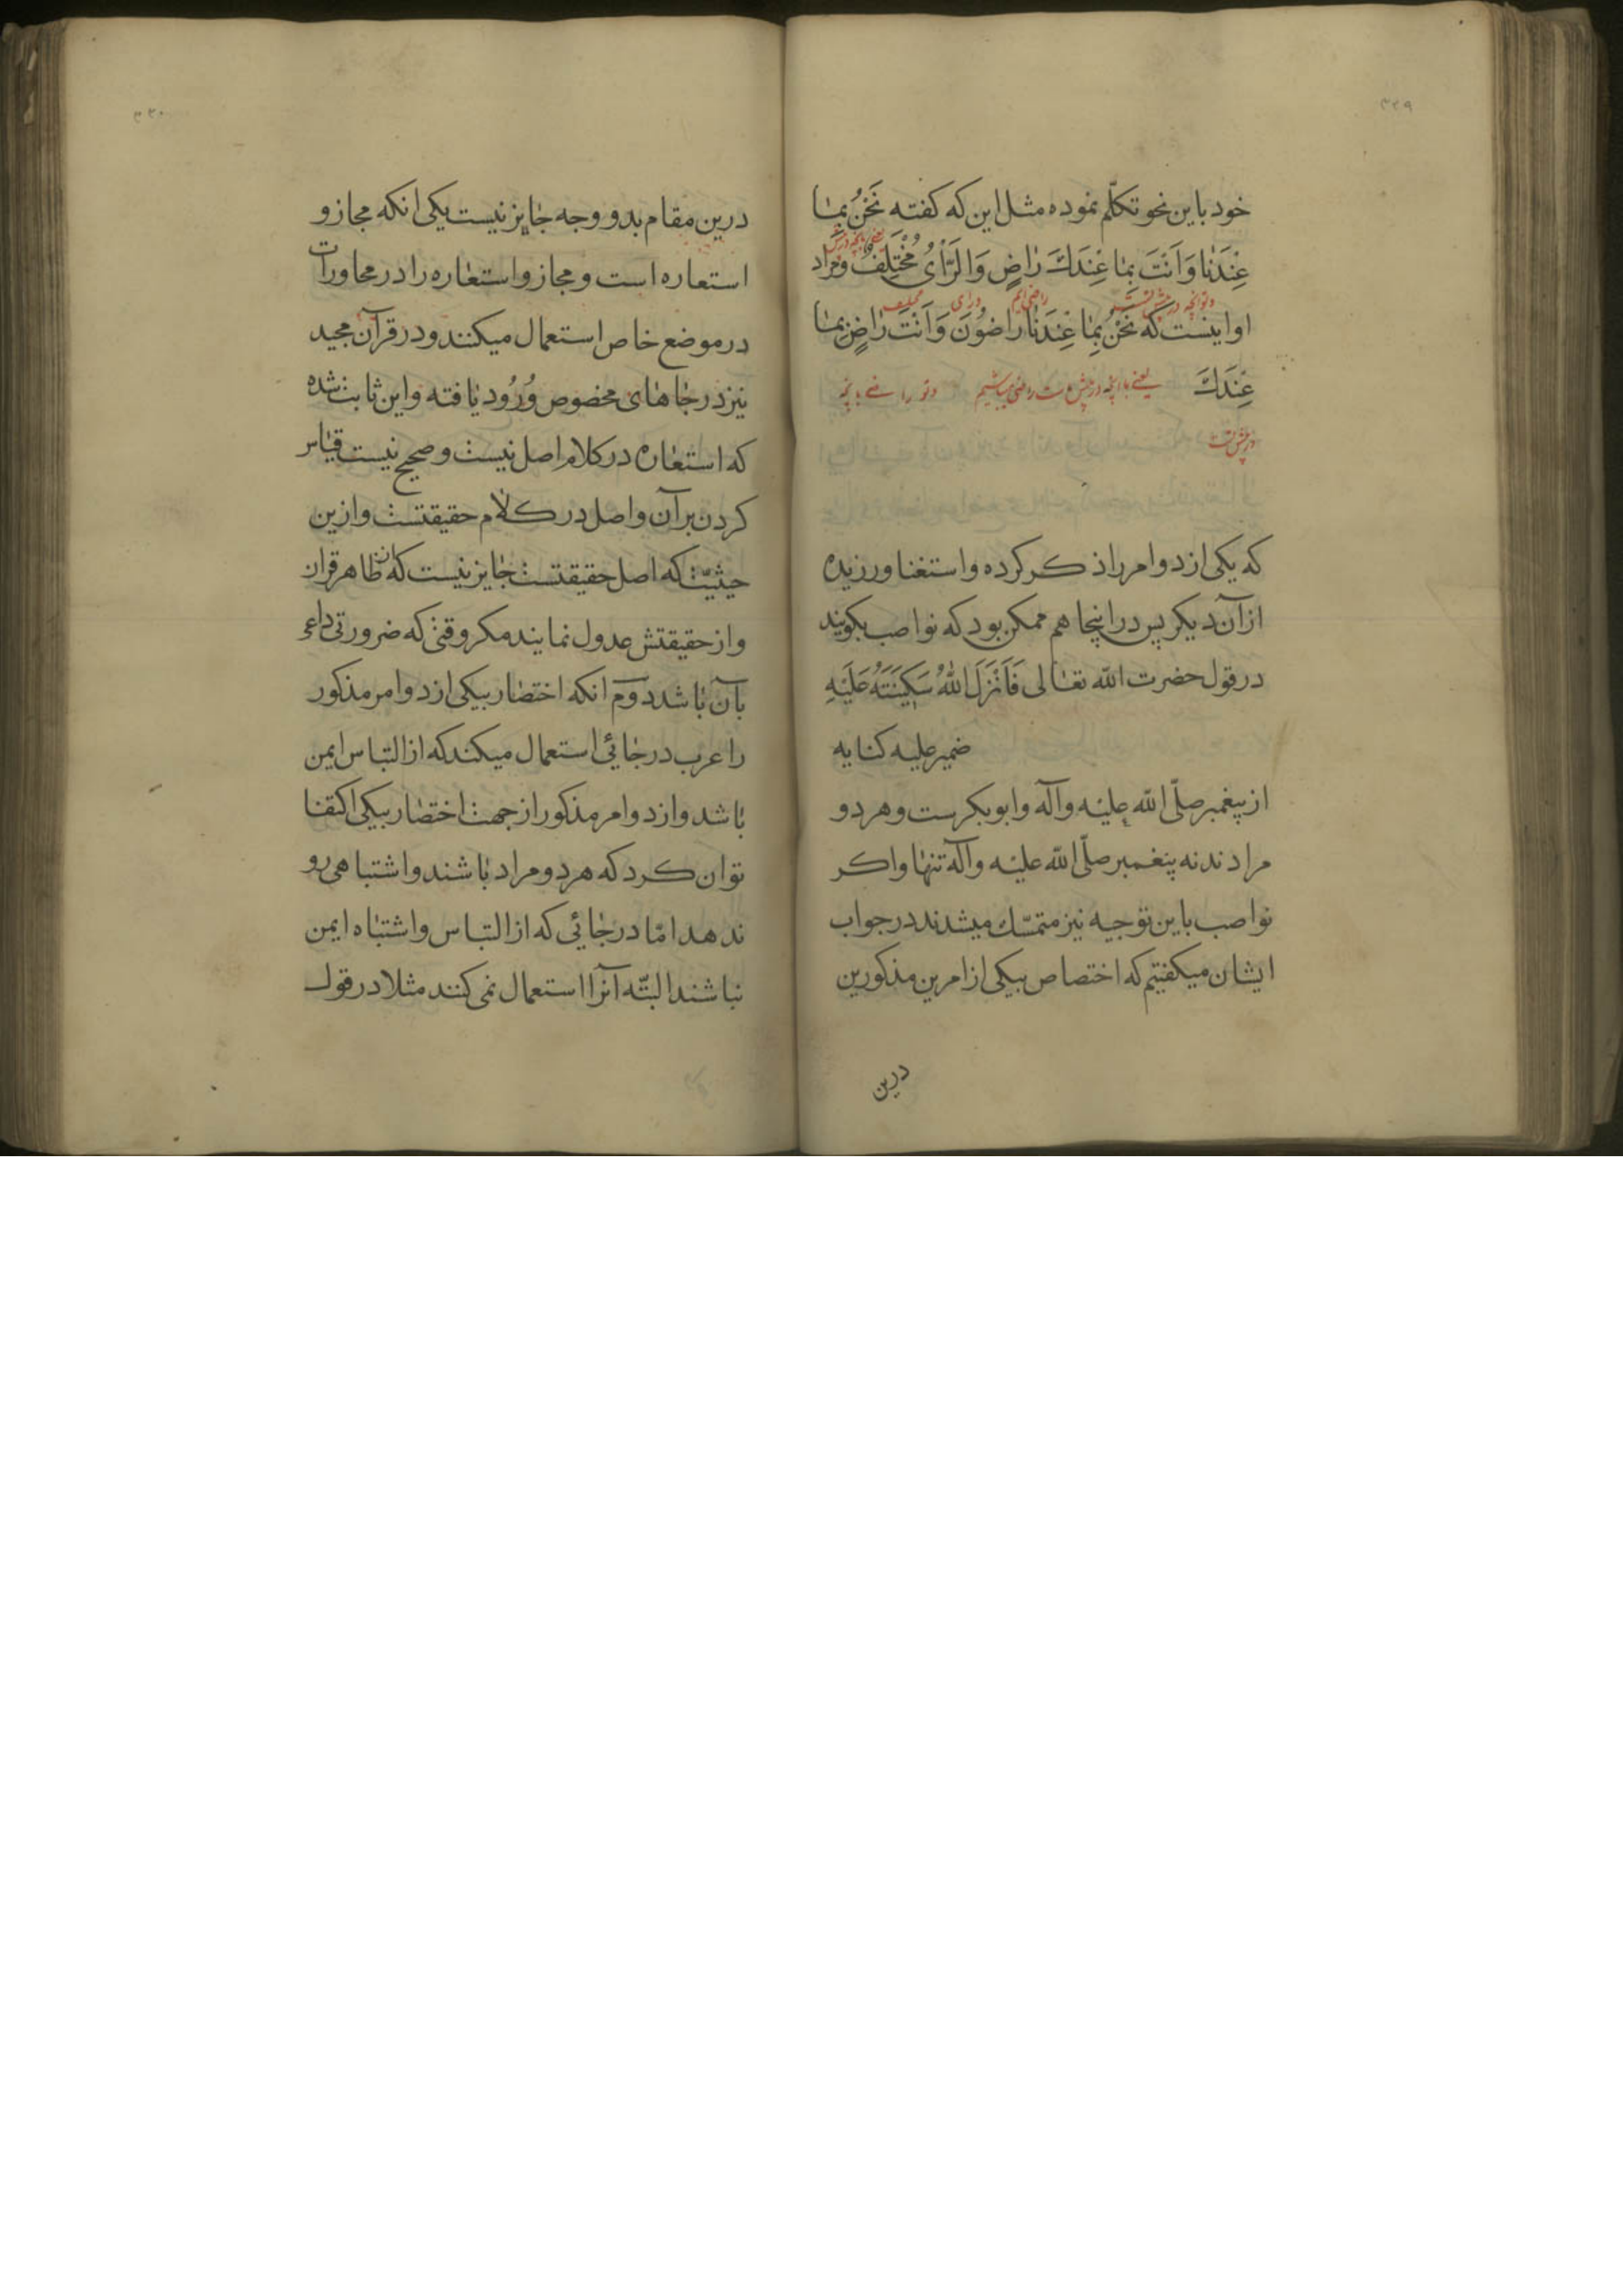 ۳۳۹
خود باین نحو تکلّم نموده مثل این که کفته نَحْنُ بِمٰا
عِنْدَنٰا وَاَنْتَ بِمٰا عِنْدَكَ رٰاضٍ وَالرَّأیُ مُخْتَلِفٌ ومراد
او اینست که نَحْنُ بِمٰا عِنْدَنٰا رٰاضُونَ وَاَنْتَ رٰاضٍ بِمٰا
عِنْدَكَ یعنی باانچه در پیش ماست راضی میباشیم وتو راضی بانچه
در پیش تست
که یکی از دو امر را ذکر کرده و استغنا ورزیده
از آن دیکر پس در اینجا هم ممکن بود که نواصب بکویند
در قول حضرت الله تعٰالی فَاَنْزَلَ اللهُ سَکِینَتَهُ عَلَیْهِ
ضمیر علیه کنایه
از پیغمبر صلّی الله علیه وآله وابوبکرست وهر دو
مرادند نه پیغمبر صلّی الله علیه وآله تنهٰا واکر
نواصب باین توجیه نیز متمسّك میشدند در جواب
ایشان میکفتیم که اختصاص بیکی از امرین مذکورین
درین
۳۴۰
درین مقام بدو وجه جٰایز نیست یکی انکه مجاز و
استعاره است ومجاز واستعٰاره را در محاورات
در موضع خاص استعمال میکنند ودر قرآن مجید
نیز در جٰاهٰای مخصوص وُرُود یٰافته واین ثابت شده
که استعٰاره در کلام اصل نیست وصحیح نیست قیٰاس
کردن بر آن واصل در کلام حقیقتست وازین
حیثیّت که اصل حقیقتست جٰایز نیست که از ظٰاهر قران
واز حقیقتش عدول نمایند مکر وقتی که ضرورتی داعی
بآن بٰاشد دوّم انکه اختصٰار بیکی از دو امر مذکور
را عرب در جٰائی استعمال میکند که از التباس ایمن
بٰاشد واز دو امر مذکور از جهت اختصٰار بیکی اکتفا
توان کرد که هر دو مراد بٰاشند واشتباهی رو
ندهد امّا در جٰائی که از التباس واشتبٰاه ایمن
نباشند البتّه آنرا استعمال نمی کنند مثلا در قول